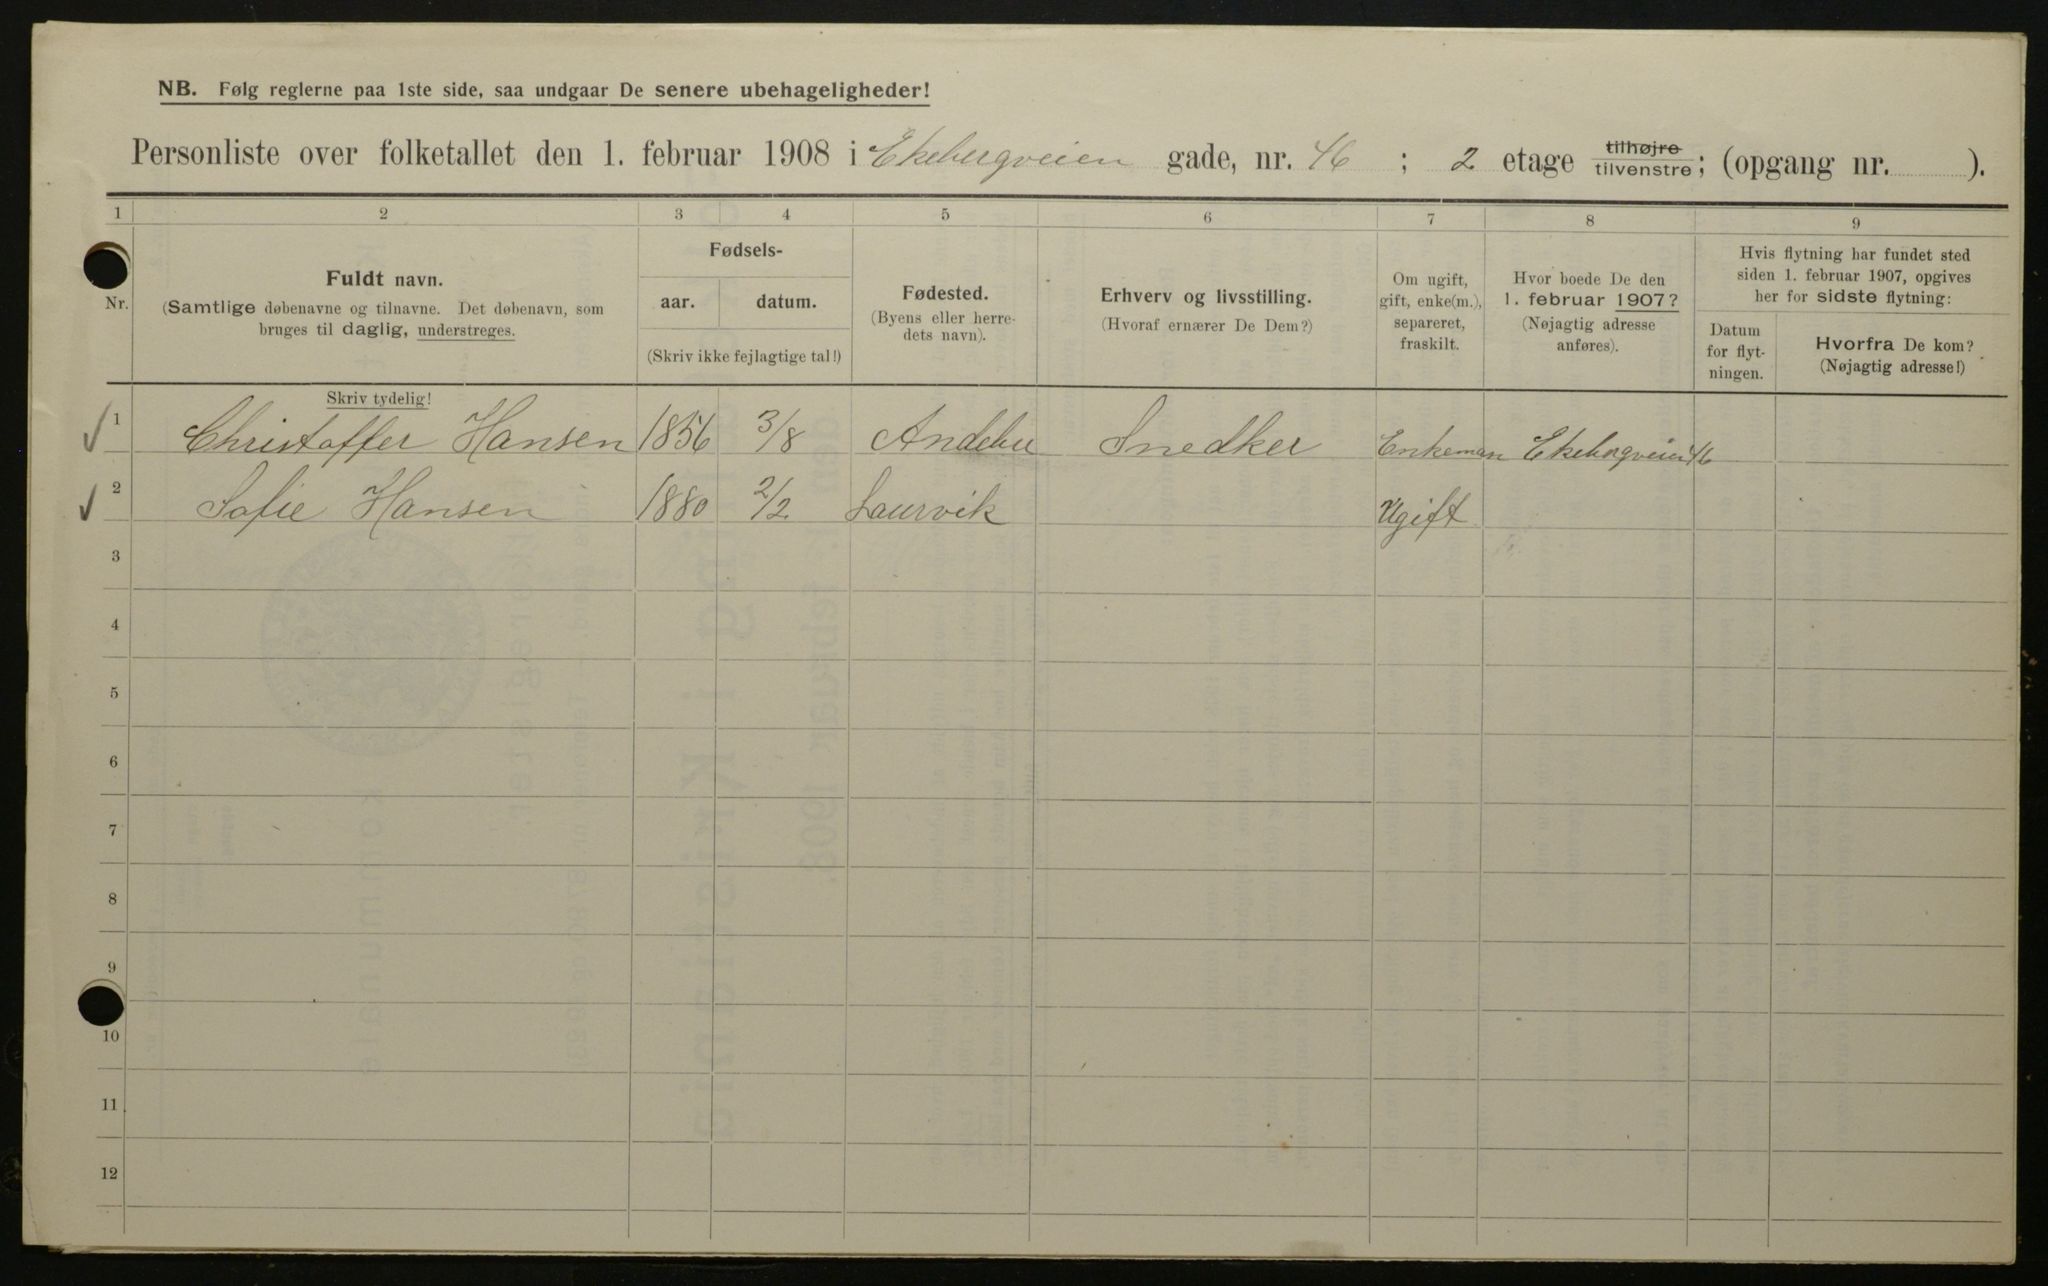 NB. Følg reglerne paa 1ste side, saa undgaar De senere ubehageligheder!
Personliste over folketallet den 1. februar 1908 i Ekebergveien gade, nr. 46 ; 2 etage tilhøjre tilvenstre; (opgang nr. ).
1 2 3 4 5 6 7 8 9
Nr.
Fuldt navn.
(Samtlige døbenavne og tilnavne. Det døbenavn, som
bruges til daglig, understreges.
Skriv tydelig!
Fødsels-
aar. datum.
(Skriv ikke fejlagtige tal!)
Fødested.
(Byens eller herre-
dets navn).
Erhverv og livsstilling.
(Hvoraf ernærer De Dem?)
Om ugift,
gift, enke(m.),
separeret,
fraskilt.
Hvor boede De den
1. februar 1907?
(Nøjagtig adresse
anføres).
Hvis flytning har fundet sted
siden 1. februar 1907, opgives
her for sidste flytning:
Datum
for flyt-
ningen.
Hvorfra De kom?
(Nøjagtig adresse!)
1 Christoffer Hansen 1856 3/8 Andebu Snedker Enkeman Ekebergveien 46
2 Sofie Hansen 1880 2/2 Laurvik Ugift
3
4
5
6
7
8
9
10
11
12